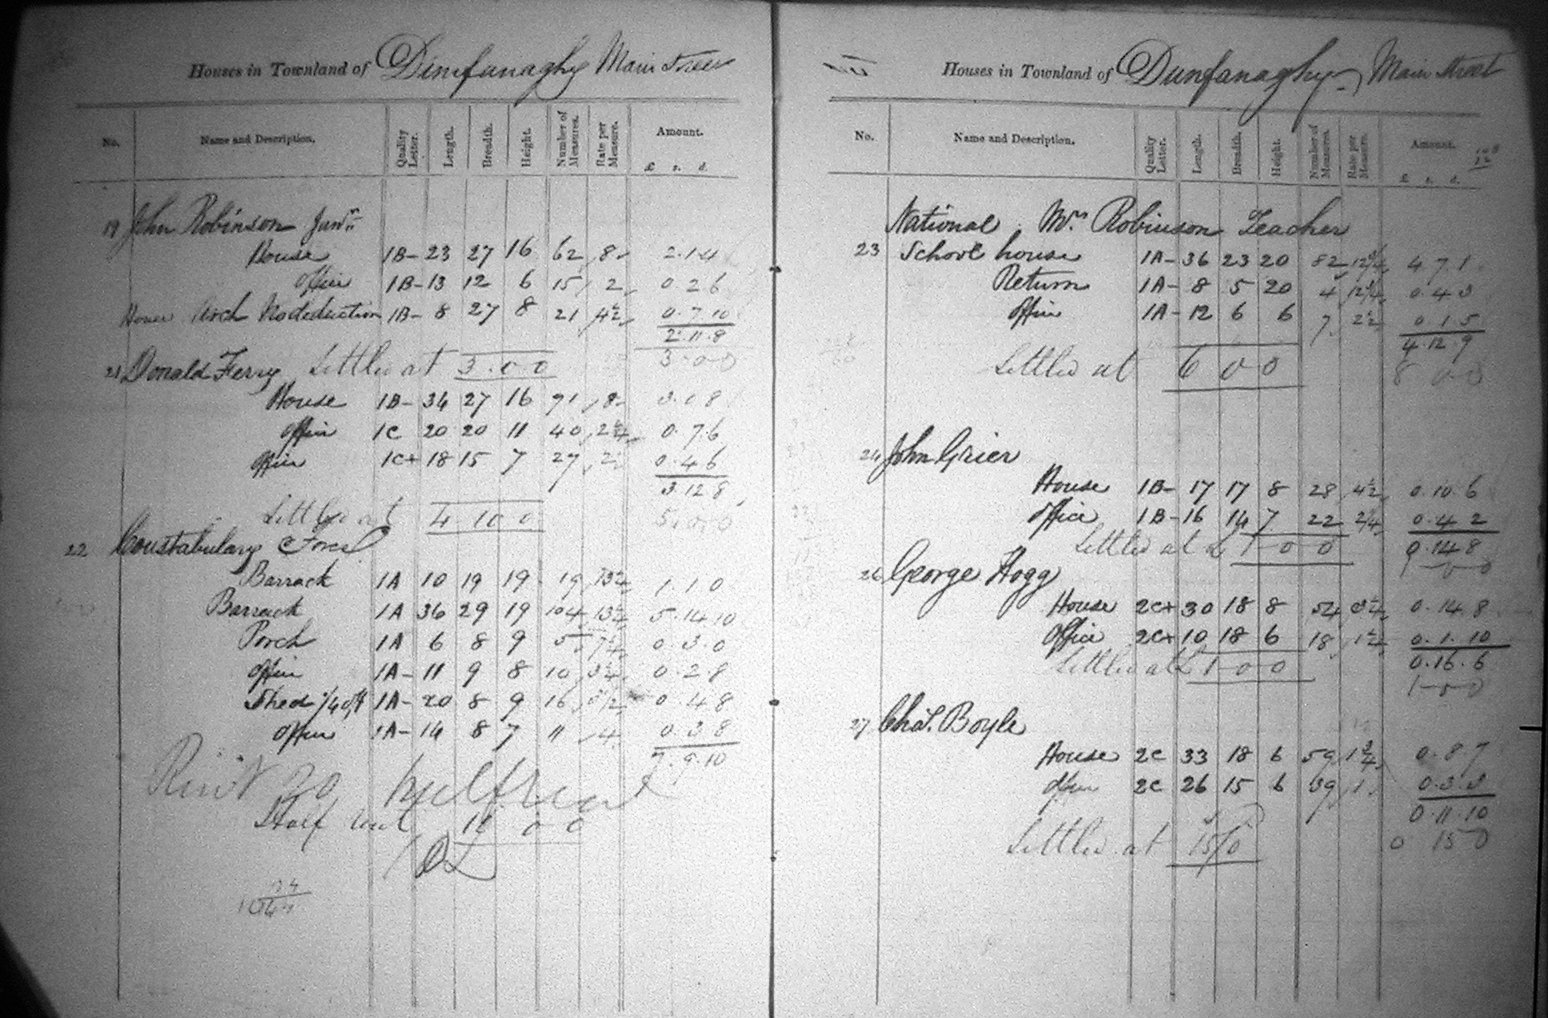 Houses in Townland of Dunfanaghy Main Street
No. Name and Description. Quality Letter. Length. Breadth. Height. Number of Measures. Rate per Measure. Amount.
£ s. d.
19 John Robinson Junr
House 1B- 23 27 16 62 8 2.1.4
Office 1B- 13 12 6 15 2 0 2 6
House Arch No deduction 1B- 8 27 8 21 4½ 0.7.10
2.11.8
Settled at 3.0.0 3.0.0
21 Donald Ferry
House 1B- 34 27 16 91 8 3.0.8
Office 1C 20 20 11 40 2¼ 0.7.6
Office 1C+ 18 15 7 27 2 0.4.6
3.12.8
Settled at 4 10 0 5.0.0
22 Constabulary Force
Barrack 1A 10 19 19 19 13½ 1.1.0
Barrack 1A 36 29 19 104 13¼ 5.14.10
Porch 1A 6 8 9 5 7¼ 0.3.0
Office 1A- 11 9 8 10 3¼ 0.2.8
Shed ¼ off 1A- 20 8 9 16 0.4.8
Office 1A- 14 8 7 11 4 0.3.8
7.9.10
Rent 20
Half rent 10 0 0
10£
Houses in Townland of Dunfanaghy Main Street
No. Name and Description. Quality Letter. Length. Breadth. Height. Number of Measures. Rate per Measure. Amount.
£ s. d.
National Mrs Robinson Teacher
23 School house 1A- 36 23 20 82 12¾ 4 7 1
Return 1A- 8 5 20 4 12¾ 0.4.3
Office 1A- 12 6 6 7 2½ 0.1.5
4.12.9
Settled at 6 0 0 8 0 0
24 John Grier
House 1B- 17 17 8 28 4½ 0.10.6
Office 1B- 16 14 7 22 2¼ 0.4.2
0.14.8
Settled at £ 1-0 0 1-0 0
26 George Hogg
House 2C+ 30 18 8 54 3¼ 0.14.8
Office 2C+ 10 18 6 18 1¼ 0.1.10
0.16.6
Settled at £ 1-0 0 1-0 0
27 Chas. Boyle
House 2C 33 18 6 59 1¾ 0.8.7
Office 2C 26 15 6 39 1 0.3.3
0.11.10
Settled at 15/0 0 15 0